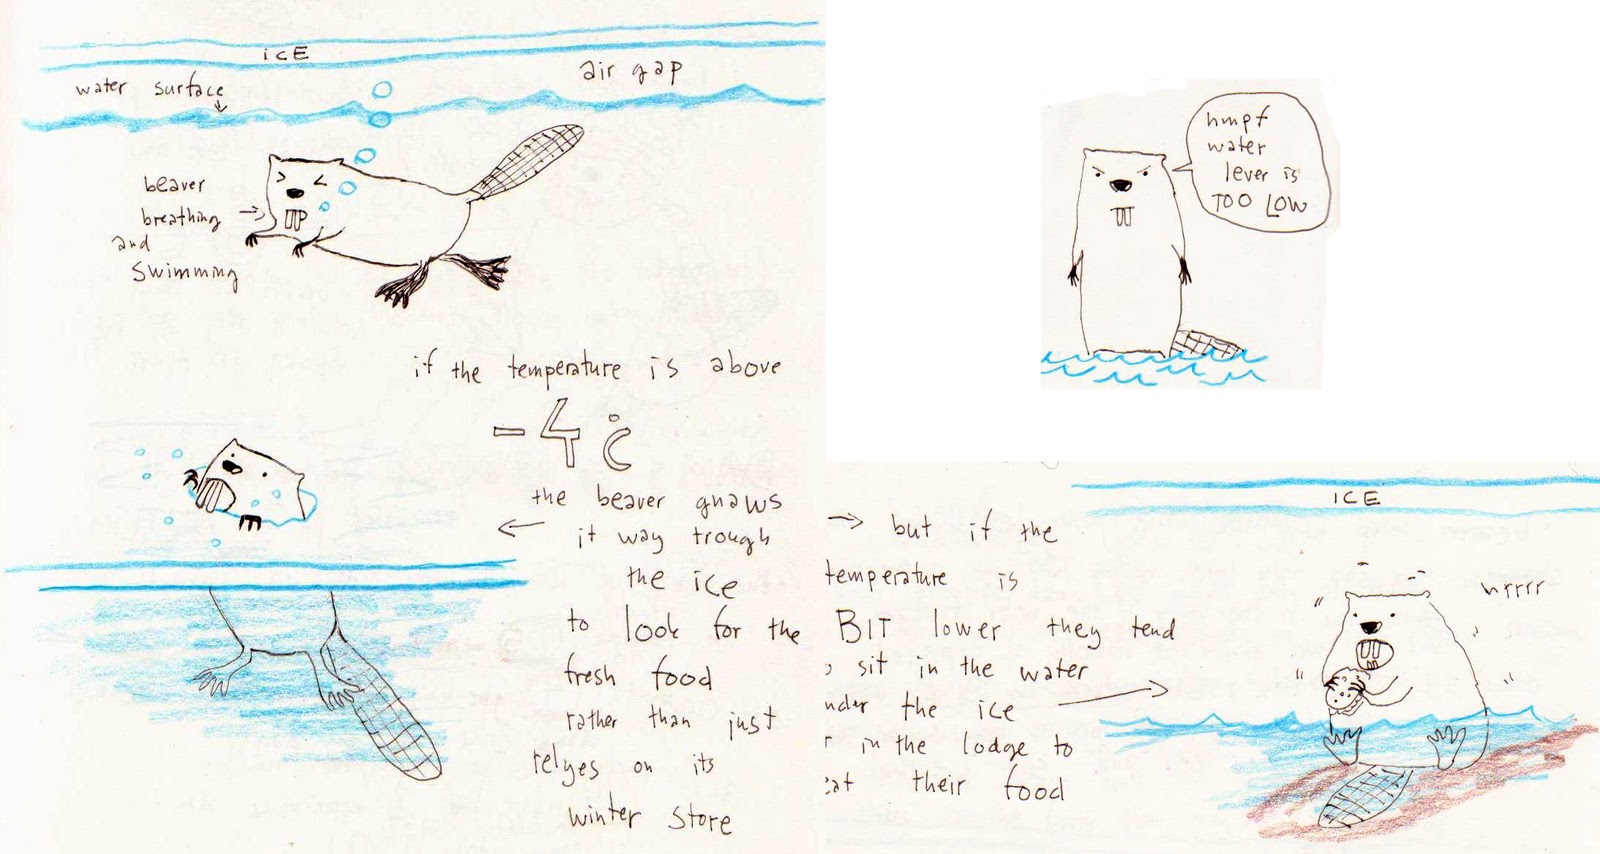 ICE
air gap
water surface
beaver
breathing
and
swimming
if the temperature is above
-4°C
the beaver gnaws
it way trough
the ice
to look for the
fresh food
rather than just
relyes on its
winter store
hmpf
water
lever is
TOO LOW
but if the
temperature is
BIT lower they tend
o sit in the water
nder the ice
r in the lodge to
eat their food
ICE
hrrrr